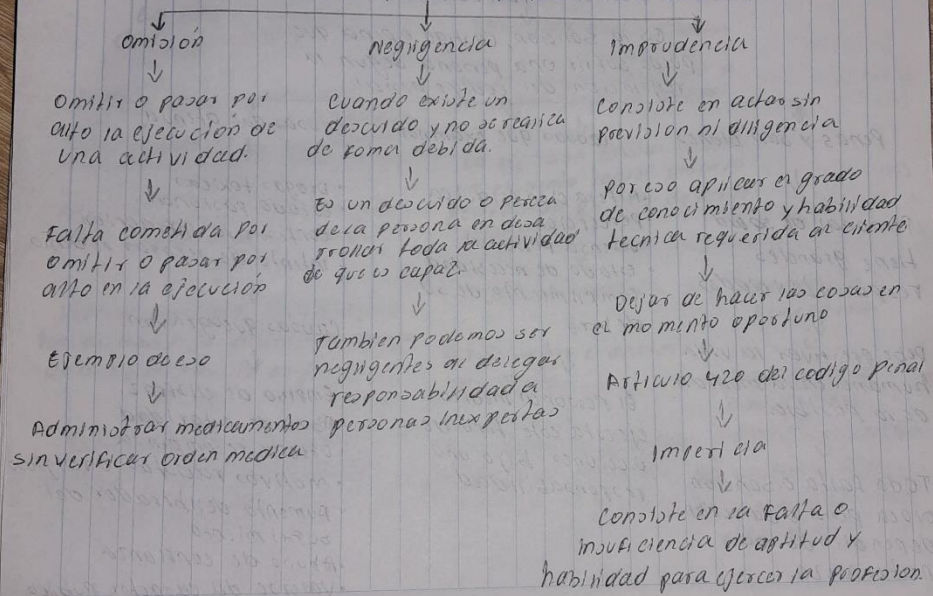 Omisión
Omitir o pasar por
alto la ejecución de
una actividad.
Falta cometida por
omitir o pasar por
alto en la ejecución
Ejemplo de eso
Administrar medicamentos
sin verificar orden medica
Negligencia
Cuando existe un
descuido y no se realica
de foma debida.
Es un descuido o pereza
de la persona en desa
rrollar toda la actividad
de que es capaz.
Tambien podemos ser
negligentes al delegar
responsabilidad a
personas inexpertas
Imprudencia
Consiste en actar sin
prevision ni diligencia
por eso aplicar el grado
de conocimiento y habilidad
tecnica requerida al cliente
Dejar de hacer las cosas en
el momento oportuno
Articulo 420 del codigo penal
Impericia
Consiste en la falta o
insuficiencia de aptitud y
habilidad para ejercer la profesion.